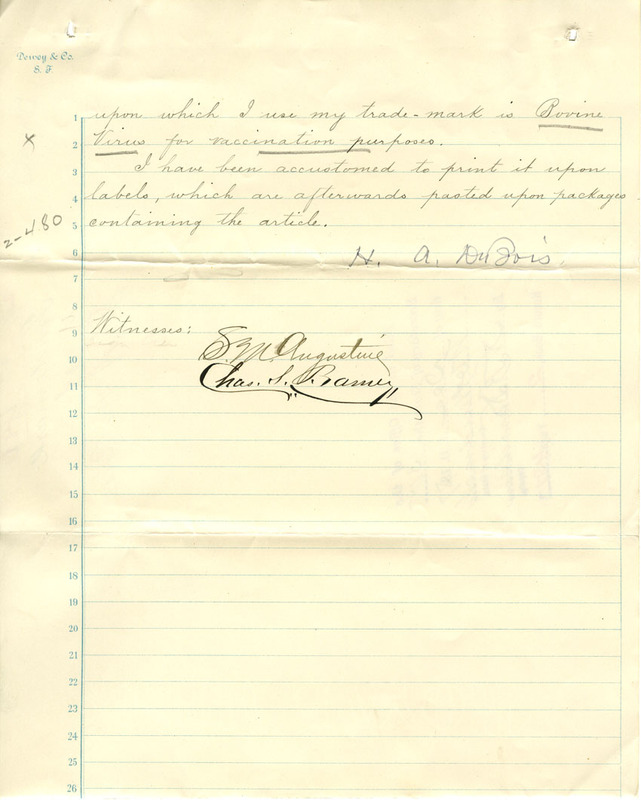 Dewey & Co.
S. F.
1 upon which I use my trade-mark is Bovine
x
2 Virus for vaccination purposes.
3 I have been accustomed to print it upon
4 labels, which are afterwards pasted upon packages
2-480
5 containing the article.
6 H. A. DuBois
7
8
9 Witnesses:
10 S. M. Augustine
11 Chas. S.
12
13
14
15
16
17
18
19
20
21
22
23
24
25
26